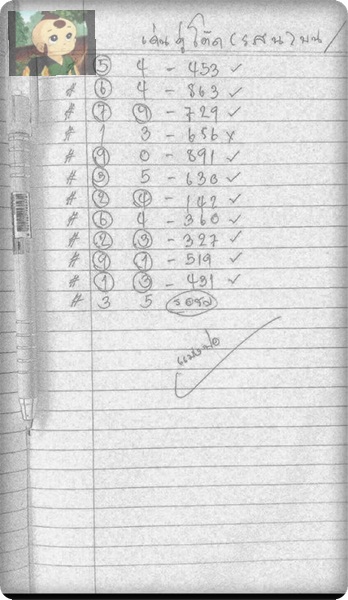 เด่น คู่ โต๊ด (รสน) บน
5 4 - 453 ✓
# 6 4 - 863 ✓
# 7 9 - 729 ✓
# 1 3 - 656 x
# 9 0 - 891 ✓
# 3 5 - 630 ✓
# 2 4 - 142 ✓
# 6 4 - 360 ✓
# 2 3 - 327 ✓
# 9 1 - 519 ✓
# 1 3 - 431 ✓
# 3 5 รอผล